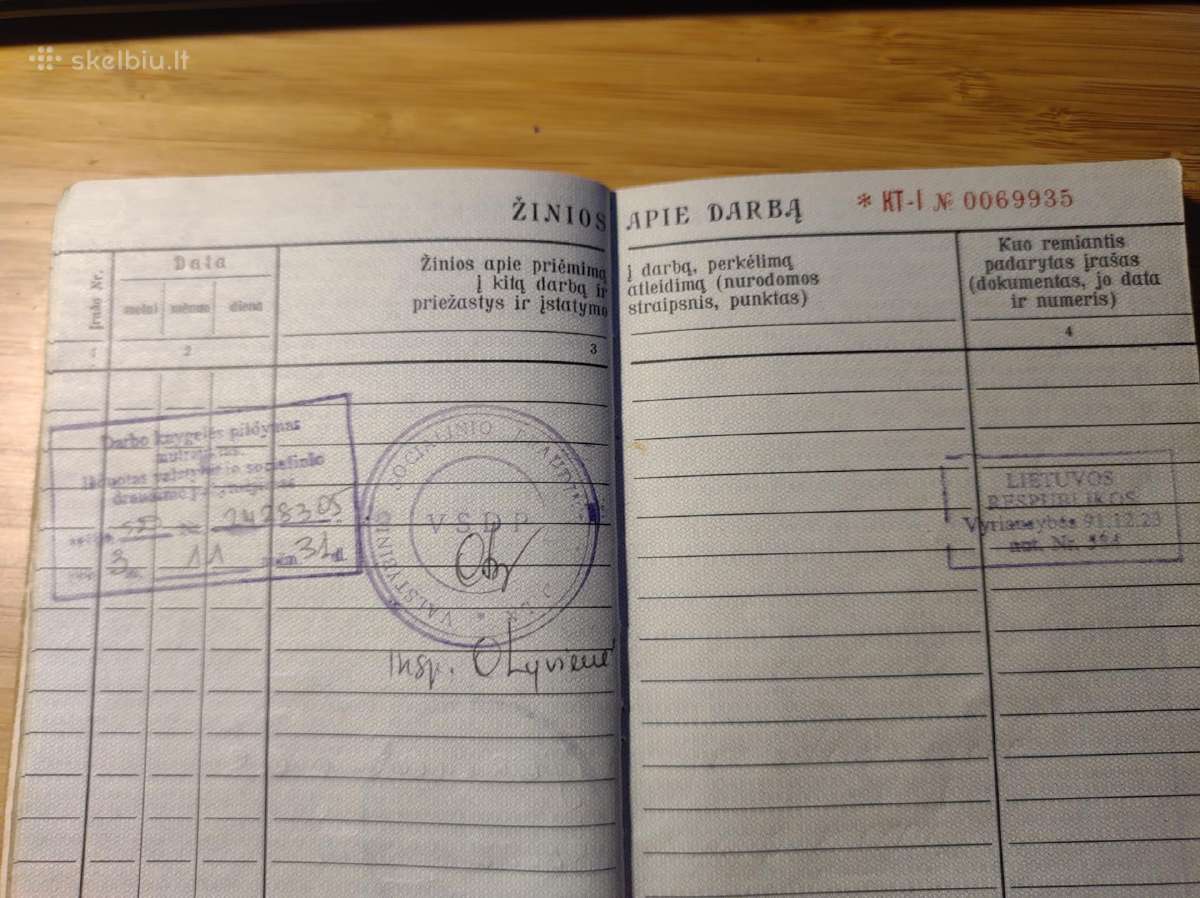 skelbiu.lt
ŽINIOS APIE DARBĄ * KT-I № 0069935
Įrašo Nr.
Data
metai mėnuo diena
Žinios apie priėmimą į darbą, perkėlimą
į kitą darbą ir atleidimą (nurodomos
priežastys ir įstatymo straipsnis, punktas)
Kuo remiantis
padarytas įrašas
(dokumentas, jo data
ir numeris)
1 2 3 4
Darbo knygelės pildymas
nutrauktas.
Išduotas valstybinio socialinio
draudimo pažymėjimas
serija SD № 2428305
11 31 d.
VALSTYBINIO SOCIALINIO DRAUDIMO
VSDP
Insp.
LIETUVOS
RESPUBLIKOS
Vyriausybės 91.12.23
nut. Nr.